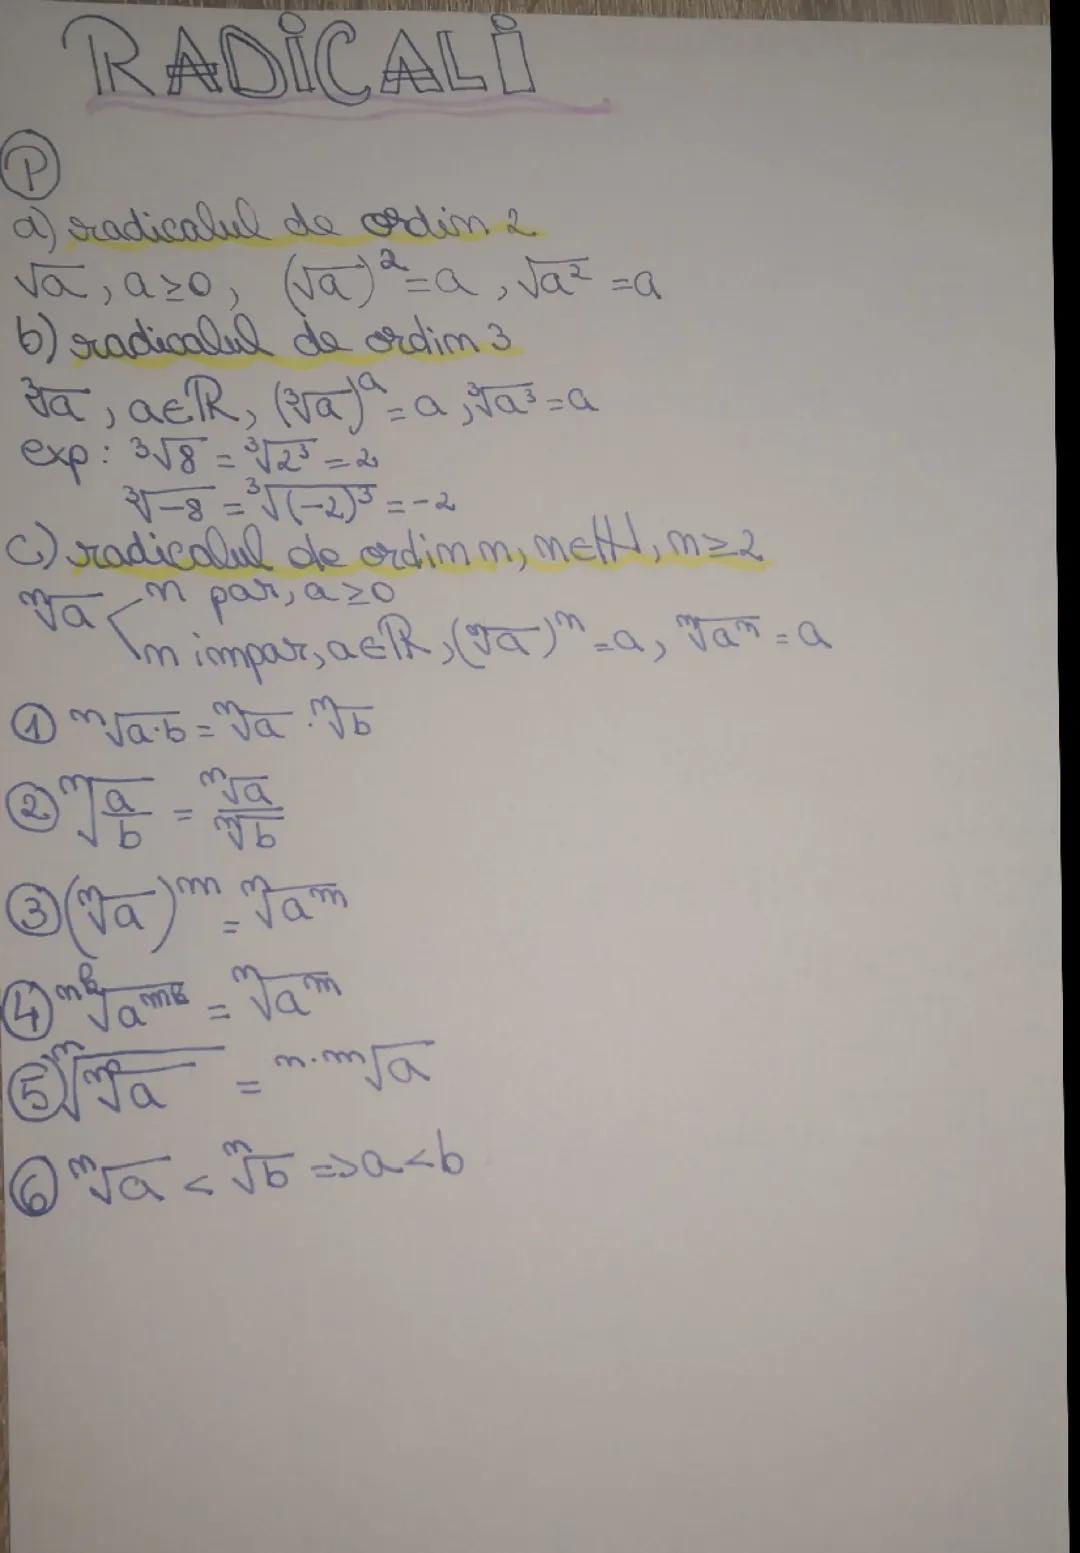 RADICALI
P
a) radicalul de ordin 2
√a, a≥0, (√a)²=a, √a² =a
b) radicalul de ordim 3
∛a, a∈ℝ, (∛a)ᵃ=a, ∛a³=a
exp: ∛8 = ∛2³ =2
∛-8 = ∛(-2)³ =-2
c) radicalul de ordin n, n∈ℕ, n≥2
ⁿ√a < n par, a≥0
n impar, a∈ℝ, (ⁿ√a)ⁿ=a, ⁿ√aⁿ = a
① ⁿ√a·b = ⁿ√a · ⁿ√b
② ⁿ√a/b = ⁿ√a/ⁿ√b
③ (ⁿ√a)ᵐ = ⁿ√aᵐ
④ ⁿᵏ√aᵐᵏ = ⁿ√aᵐ
⑤ ⁿ√ᵐ√a = ⁿ·ᵐ√a
⑥ ⁿ√a < ⁿ√b => a<b